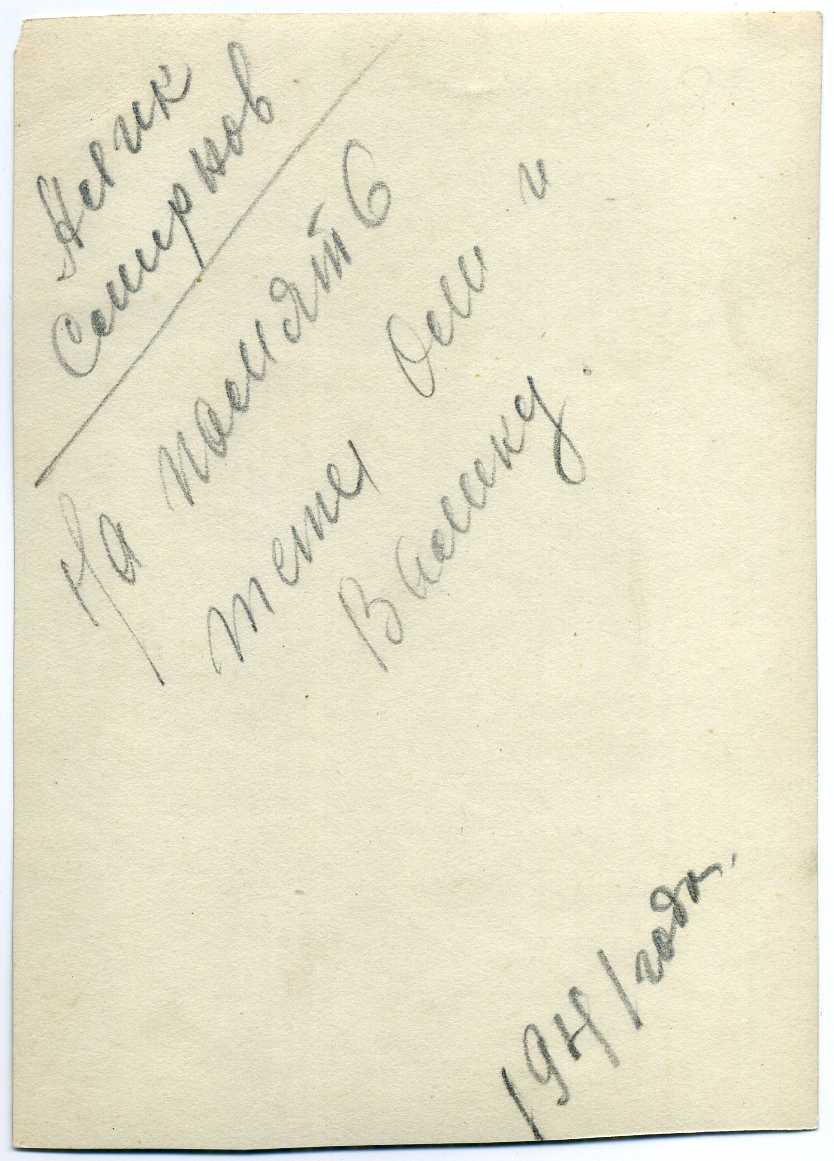 Смирнов
На память
тете Оли и
Валику.
1941 года.